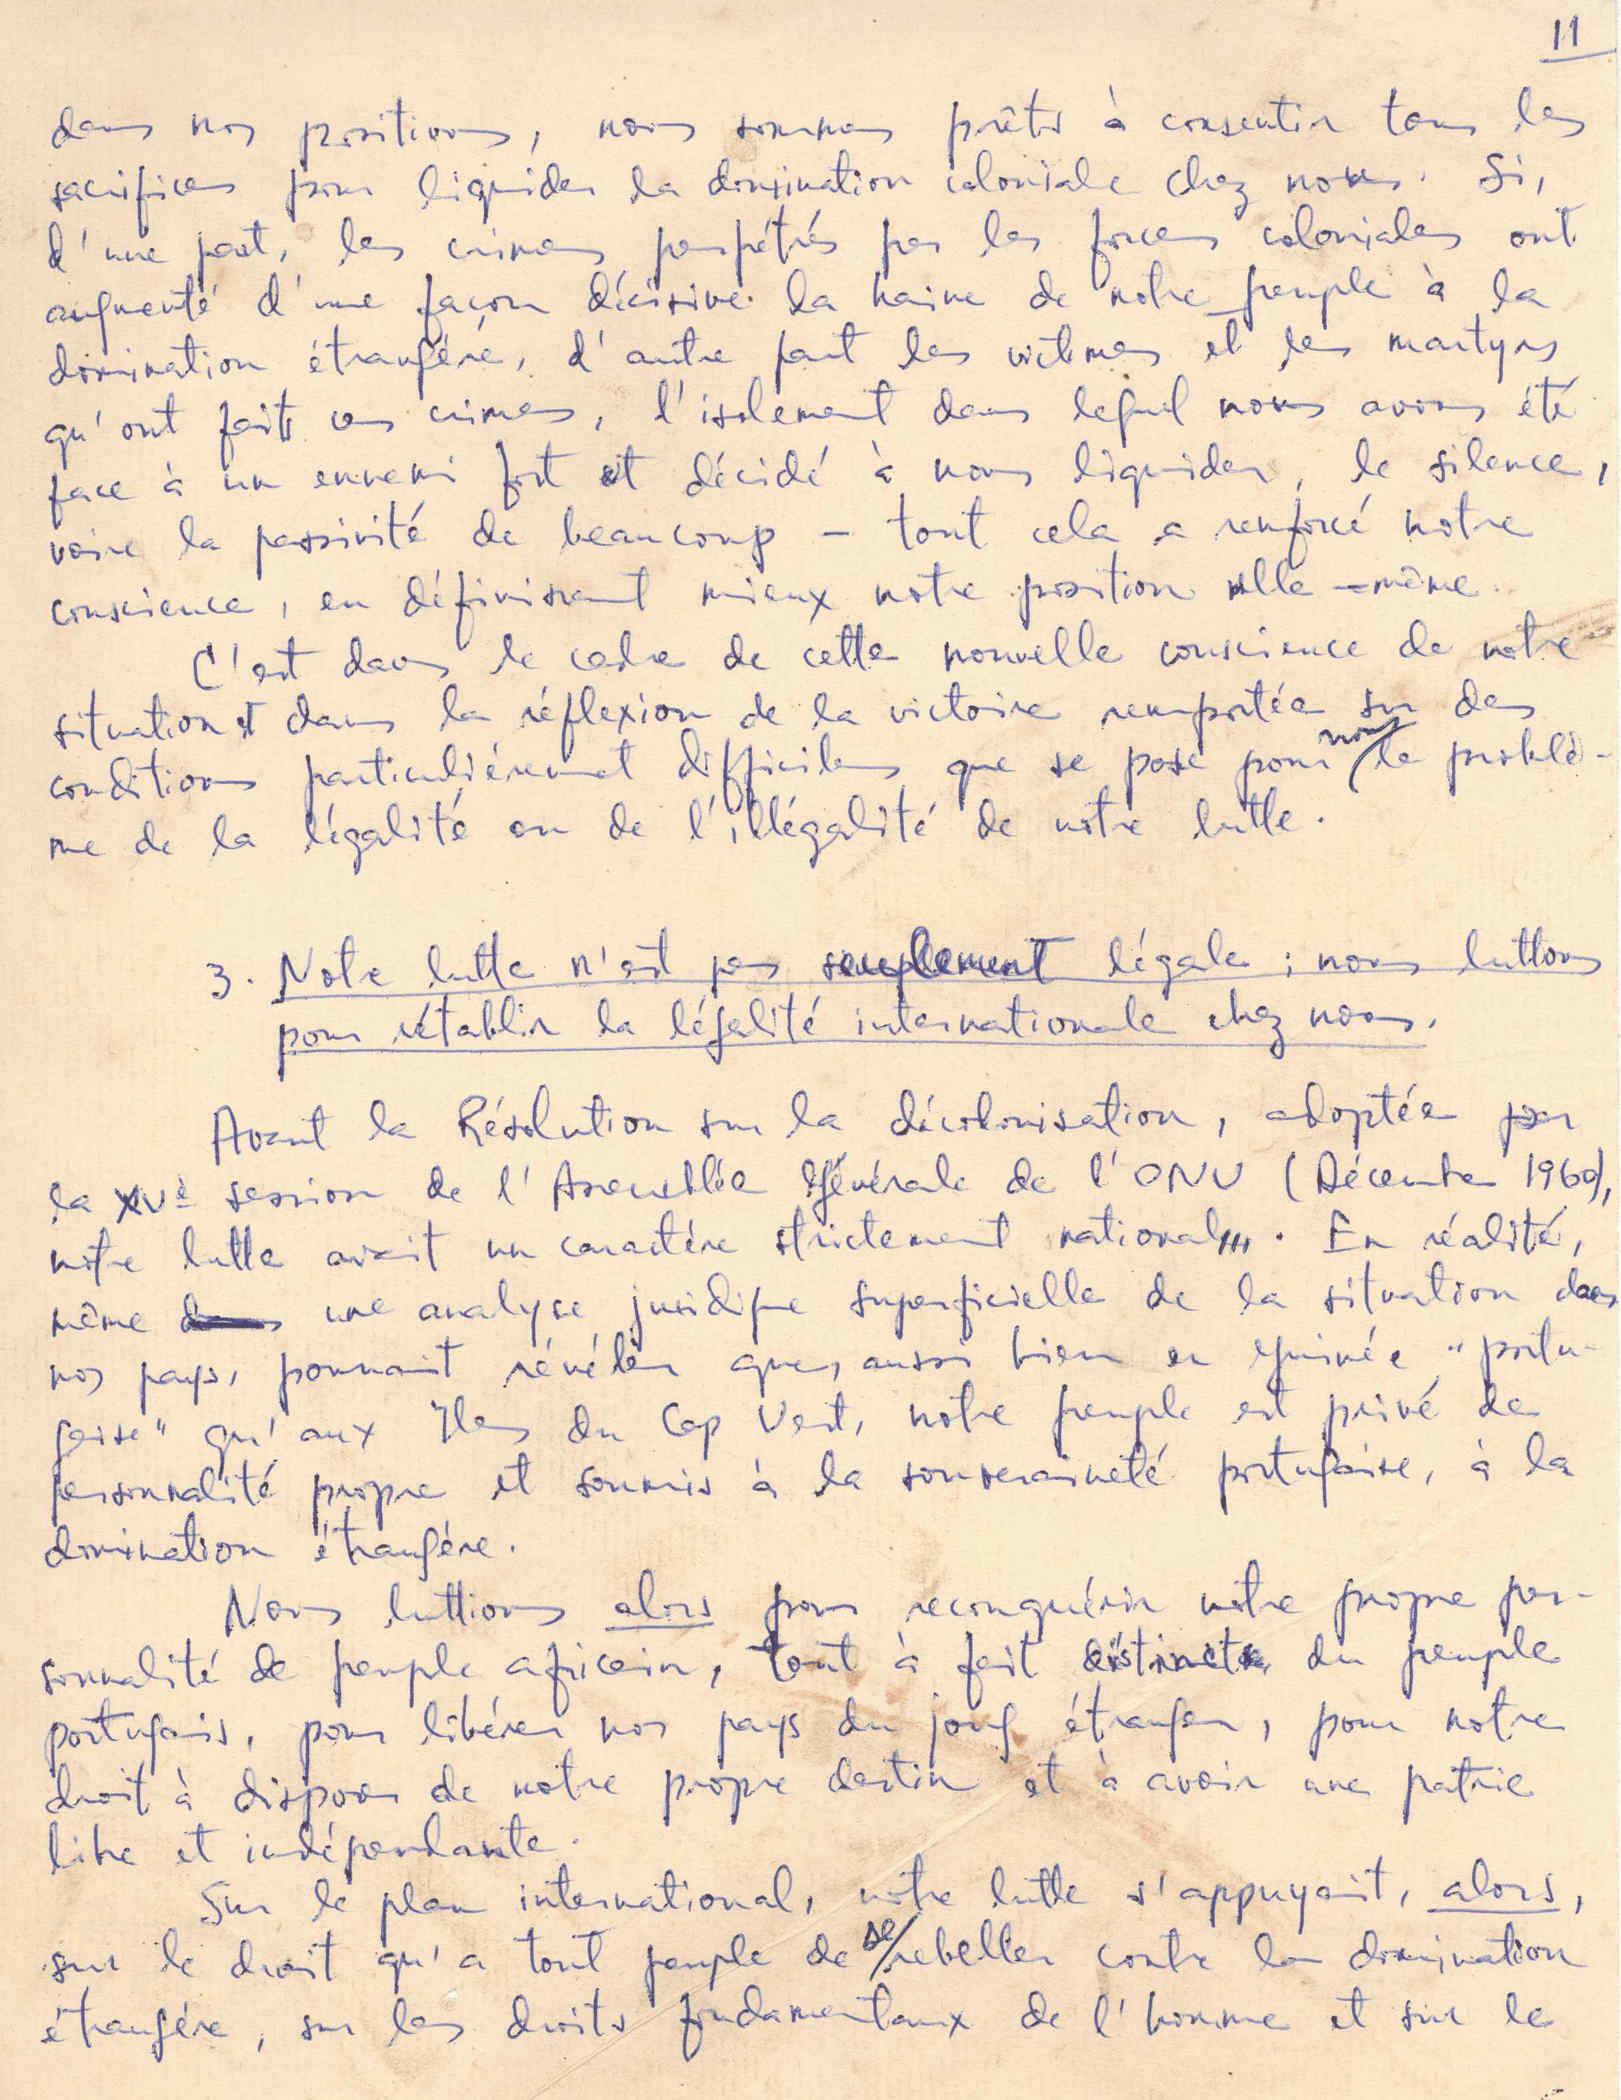 11
dans nos positions, nous sommes prêts à consentir tous les
sacrifices pour liquider la domination coloniale chez nous. Si,
d'une part, les crimes perpétrés par les forces coloniales ont
augmenté d'une façon décisive la haine de notre peuple à la
domination étrangère, d'autre part les victimes et les martyrs
qu'ont faits ces crimes, l'isolement dans lequel nous avons été
face à un ennemi fort et décidé à nous liquider, le silence,
voire la passivité de beaucoup – tout cela a renforcé notre
conscience, en définissant mieux notre position elle-même.
C'est dans le cadre de cette nouvelle conscience de notre
situation et dans la réflexion de la victoire remportée sur des
conditions particulièrement difficiles que se pose pour nous le problè-
me de la légalité ou de l'illégalité de notre lutte.
3. Notre lutte n'est pas seulement légale ; nous luttons
pour rétablir la légalité internationale chez nous.
Avant la Résolution sur la décolonisation, adoptée par
la XVè session de l'Assemblée Générale de l'ONU (Décembre 1960),
notre lutte avait un caractère strictement national. En réalité,
même une analyse juridique superficielle de la situation dans
nos pays, pouvait révéler que, aussi bien en Guinée "portu-
gaise" qu'aux Iles du Cap Vert, notre peuple est privé de
personnalité propre et soumis à la souveraineté portugaise, à la
domination étrangère.
Nous luttions alors pour reconquérir notre propre per-
sonnalité de peuple africain, tout à fait distincte du peuple
portugais, pour libérer nos pays du joug étranger, pour notre
droit à disposer de notre propre destin et à avoir une patrie
libre et indépendante.
Sur le plan international, notre lutte s'appuyait, alors,
sur le droit qu'a tout peuple de se rebeller contre la domination
étrangère, sur les droits fondamentaux de l'homme et sur le